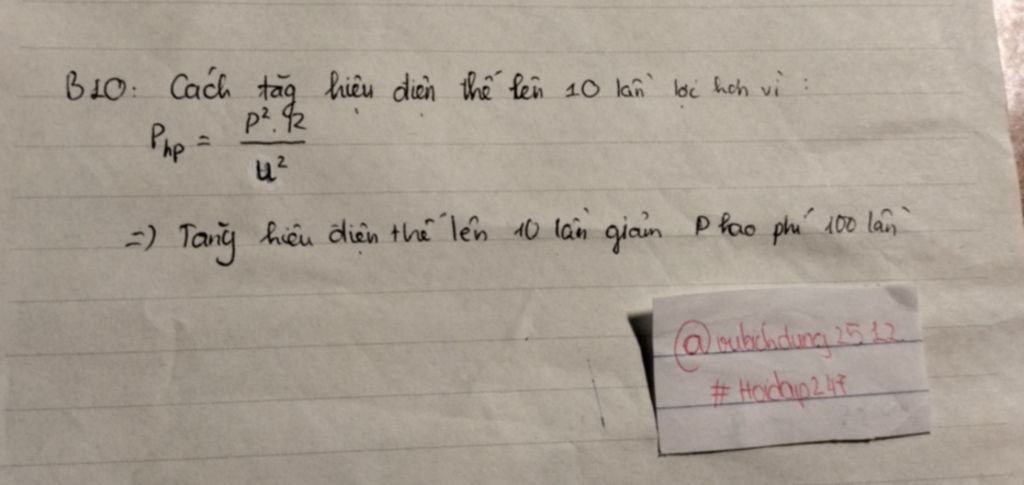 B10: Cách tăg hiệu điện thế lên 10 lần lợi hơn vì :
P_hp = P². R / U²
=> Tăng hiệu điện thế lên 10 lần giảm P hao phí 100 lần
@vubichdung2512
#Hoidap247